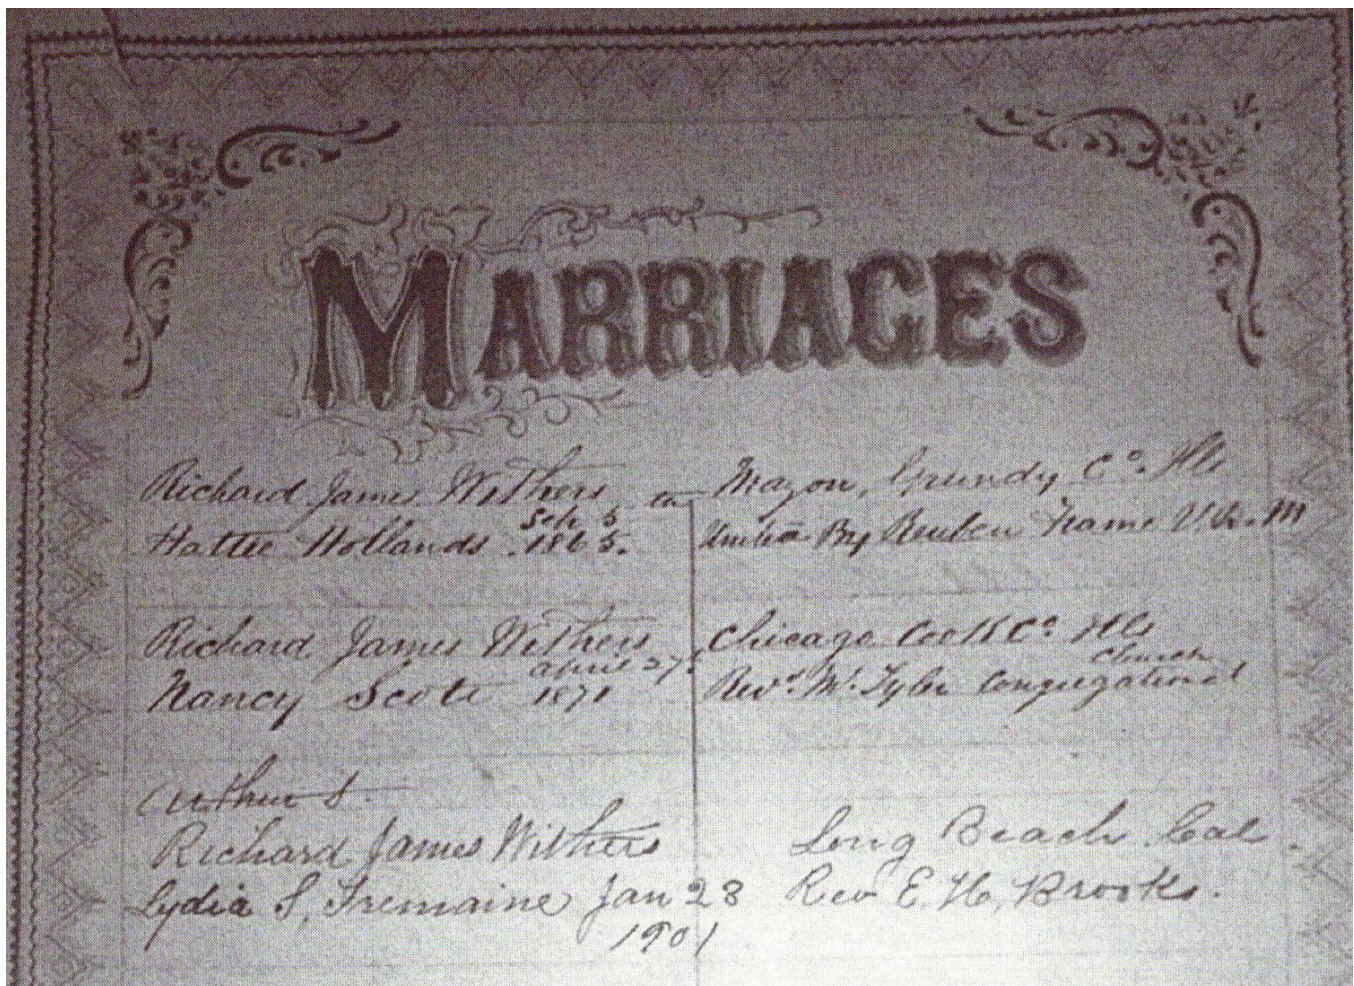 MARRIAGES
Richard James Withers in Mazon, Grundy Co. Ills
Hattie Hollands Sep. 5 1865. By Reuben
Richard James Withers Chicago Cook Co Ills
Nancy Scott april 27. 1871 Revd. Mr. Tyler Congregational Church
Arthur S.
Richard James Withers Long Beach Cal.
Lydia S. Tremaine Jan 28 Rev E. H. Brooks.
1901